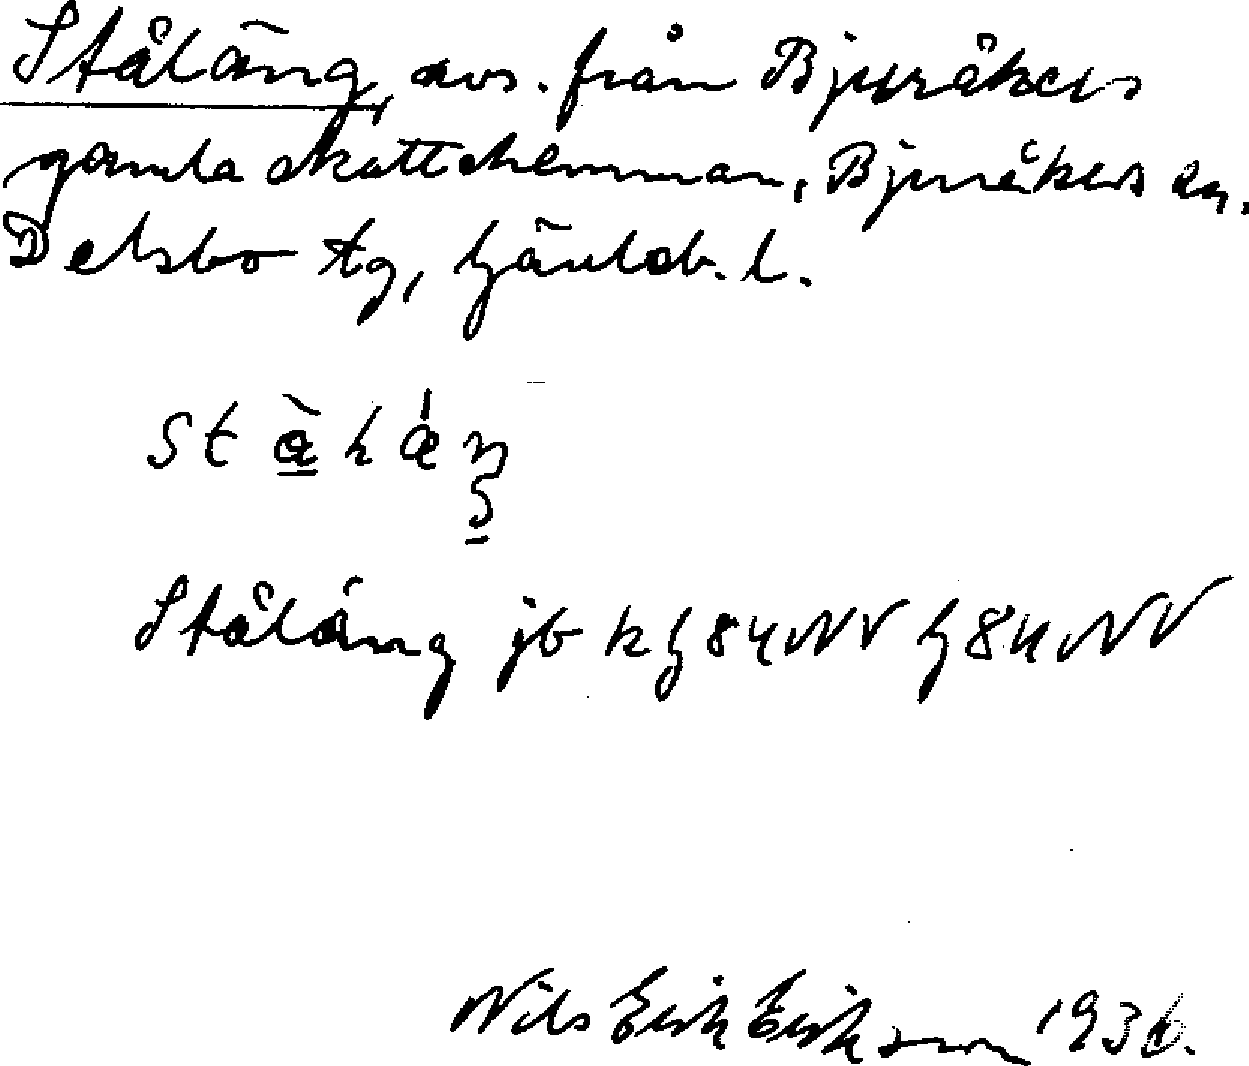 Ståläng, avs. från Bjuråkers
gamla skattehemman, Bjuråkers sn.
Delsbo tg, Gävleb. l.
Ståläng jb k G84NV G84NV
Nils Erik Eriksson 1936.